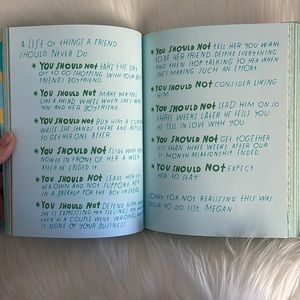 A LIST OF THINGS A FRIEND
SHOULD NEVER DO
* YOU SHOULD NOT TAKE THE DAY
OFF TO GO SHOPPING WITH YOUR BEST
FRIENDS BOYFRIEND.
* YOU SHOULD NOT MAKE HER FEEL
LIKE A THIRD WHEEL WHEN SHE'S WITH
YOU AND HER BOYFRIEND
* YOU SHOULD NOT BUY HIM A CUP
WHILE SHE STANDS THERE AND REFUSE
TO GET HER ONE AFTER.
* YOU SHOULD NOT WITH
IN FRONT OF HER A WEEK
AFTER HE ENDED IT.
* YOU SHOULD NOT LEAVE HER ON
HER OWN AND NOT SUPPORT HER
IN A BREAKUP FOR THE BOY INVOLVED
* YOU SHOULD NOT DEFEND HIM WHEN
SHE IS EXPRESSING HER FEELINGS ON WHAT
THEY AS A COUPLE WENT WHEN IT
IS NONE OF YOUR BUSINESS
* YOU SHOULD NOT TELL HER YOU WANT
TO BE HER FRIEND DESPITE EVERYTHING
AND THEN STOP TALKING TO HER WHEN
SHE'S MAKING SUCH AN EFFORT.
* YOU SHOULD NOT CONSIDER LIKING
HIM.
* YOU SHOULD NOT LEAD HIM ON SO
THREE WEEKS LATER HE TELLS YOU
HE FELL IN LOVE WITH YOU
* YOU SHOULD NOT GET TOGETHER
THAN THREE WEEKS AFTER OUR
11-MONTH RELATIONSHIP ENDED.
* YOU SHOULD NOT EXPECT
HER TO STAY.
SORRY FOR NOT REALISING THIS WAS
YOUR TO DO LIST, MEGAN